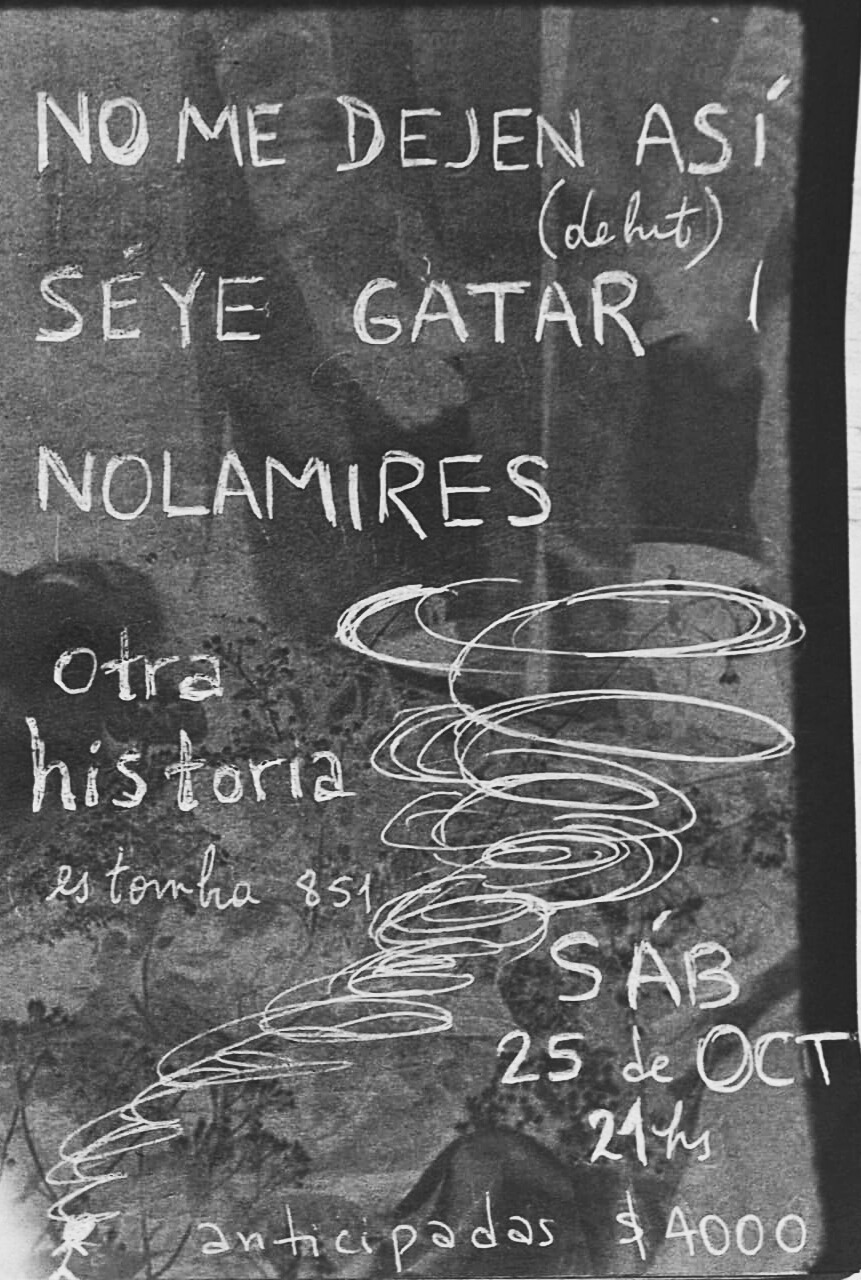 NO ME DEJEN ASÍ
(debut)
SÉYE GATAR
NOLAMIRES
otra
historia
estomba 851
SÁB
25 de OCT
21 hs
anticipadas $4000